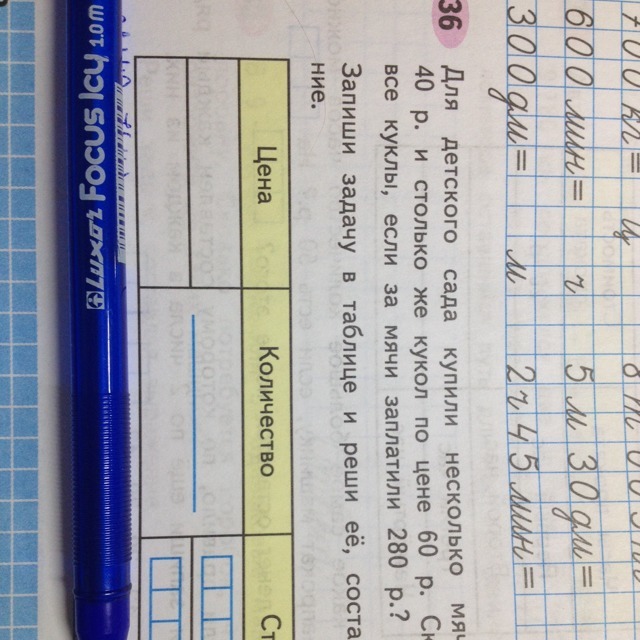 600 мин= ч 5 м 30 дм=
300 дм= м 2 ч 45 мин=
36 Для детского сада купили несколько мя
40 р. и столько же кукол по цене 60 р. Ск
все куклы, если за мячи заплатили 280 р.?
Запиши задачу в таблице и реши её, соста
ние.
Цена Количество Ст
LUXOR Focus Icy 1.0 m